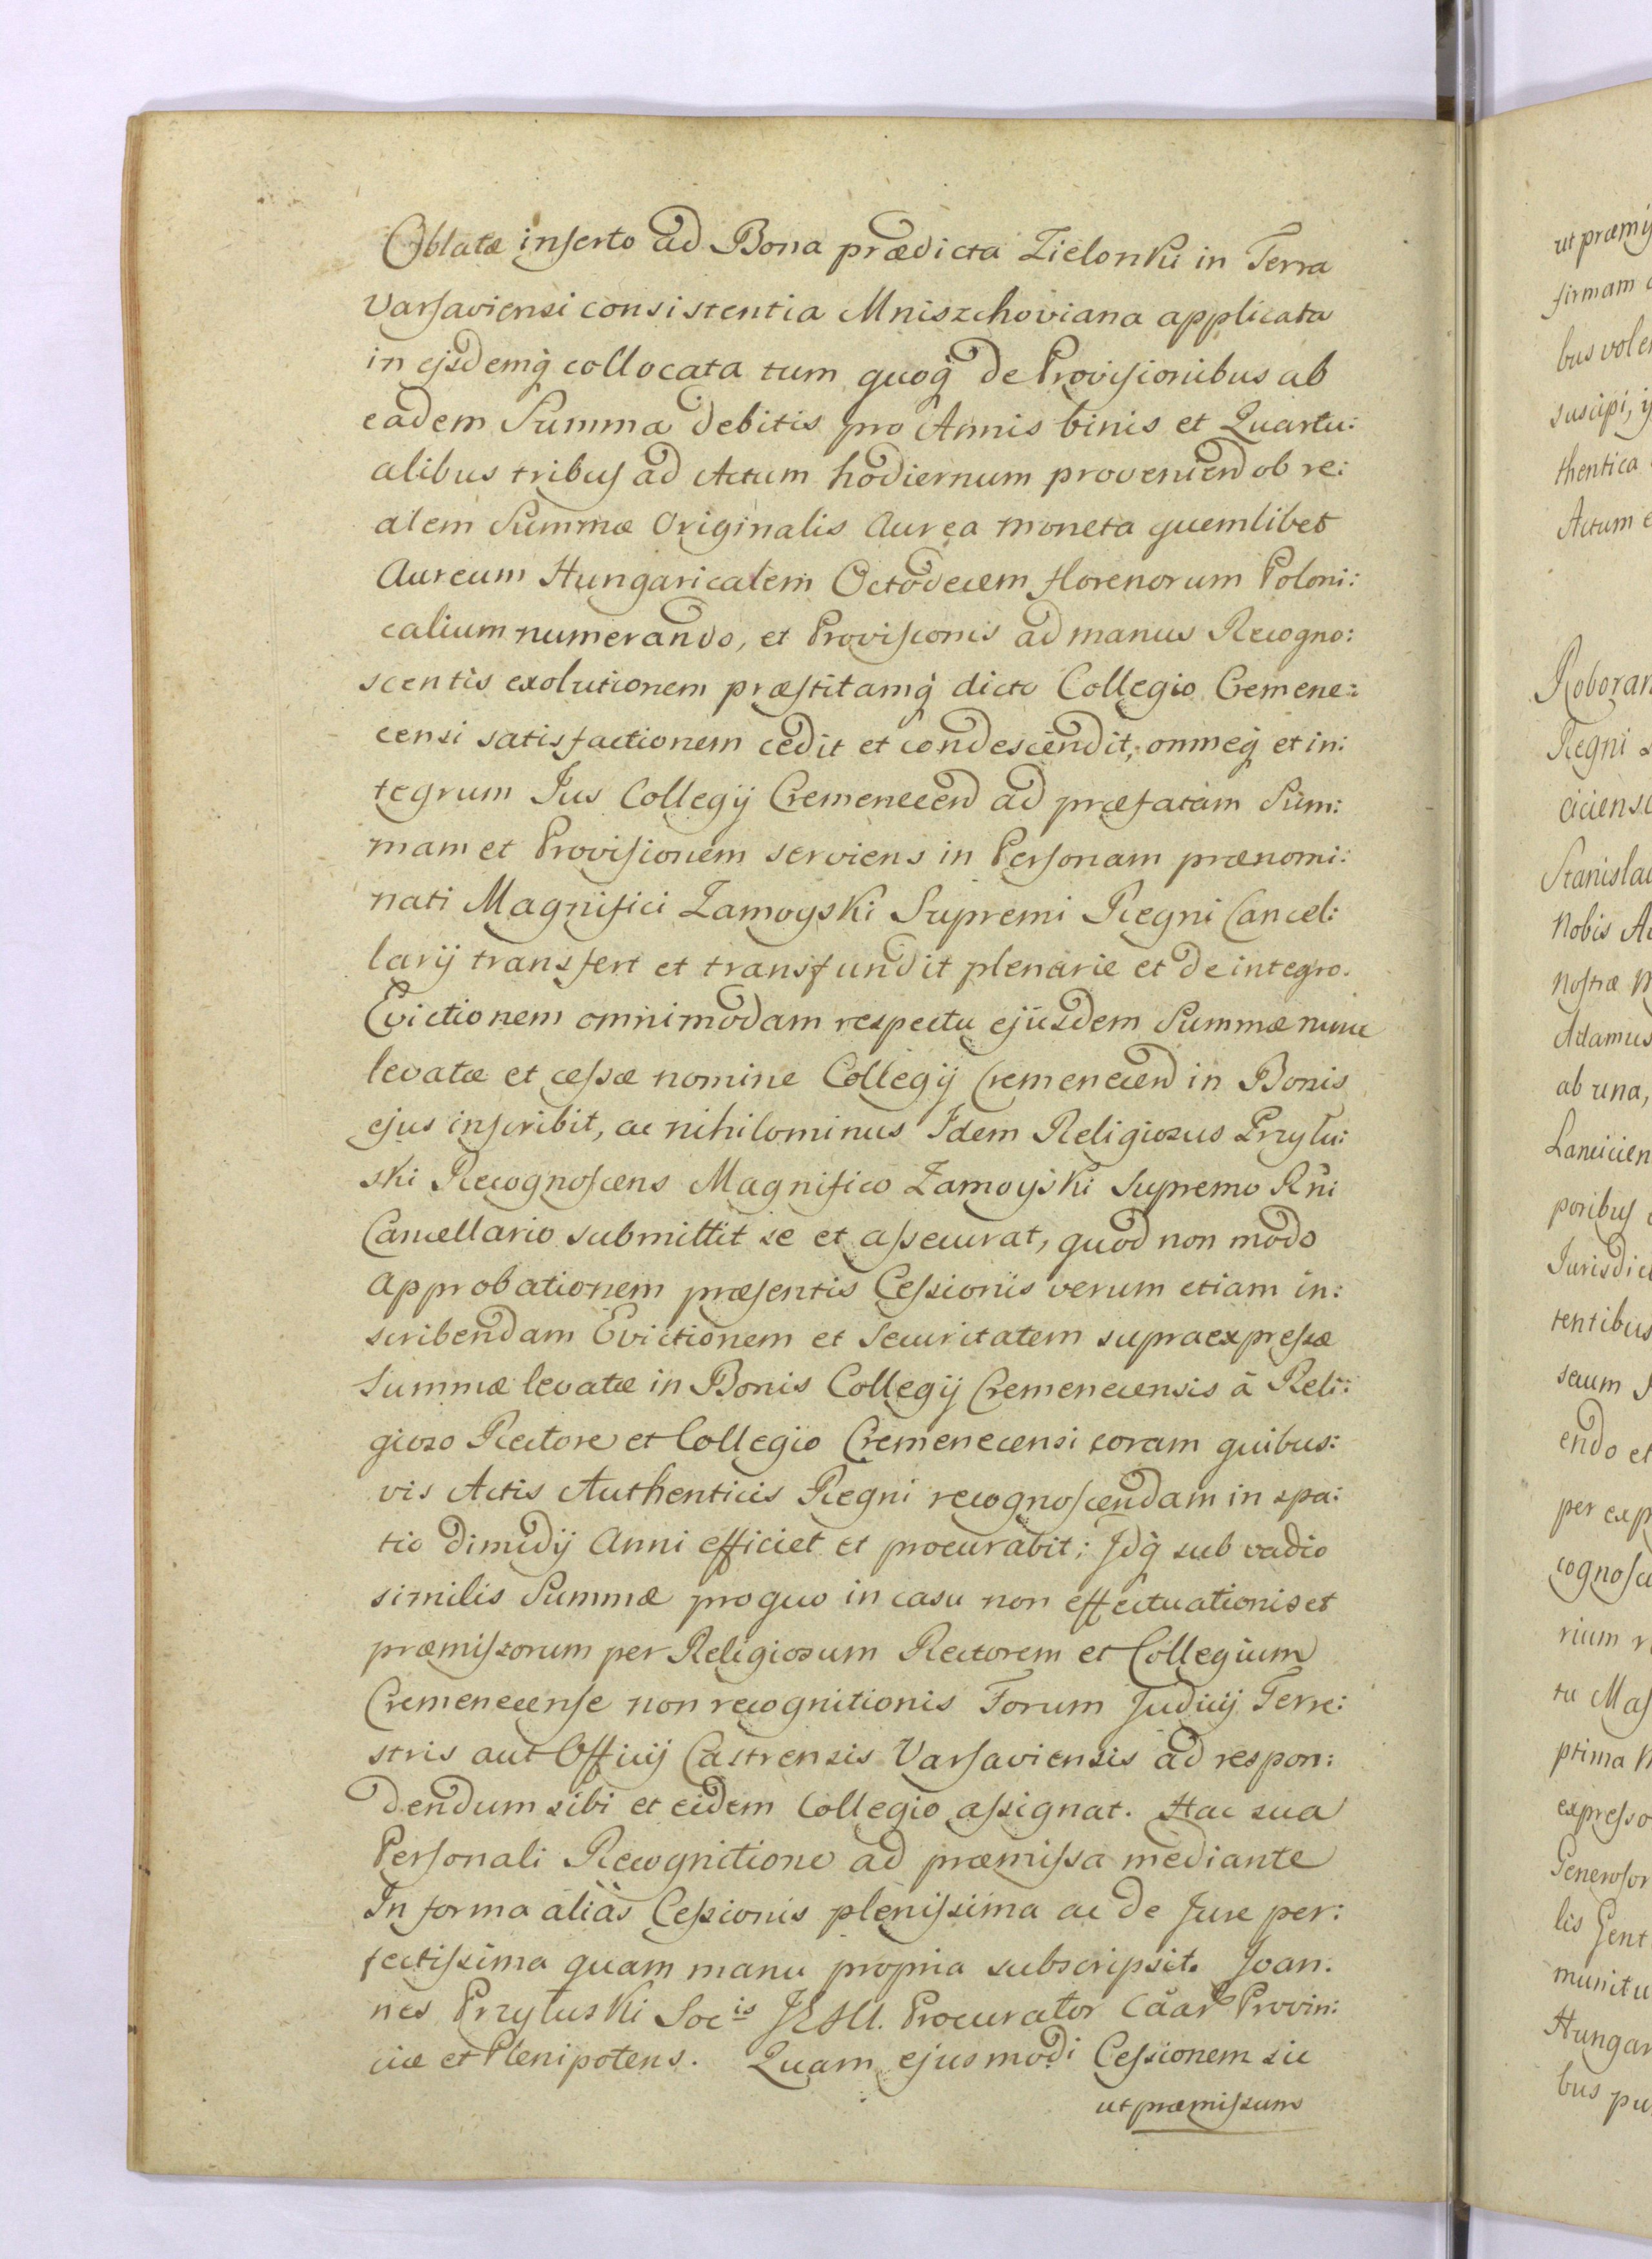 Oblatæ inserto ad Bona prædicta Zielonki in Terra
Varsaviensi consistentia Mniszchoviana applicata
in ejsdemq̀ collocata tum quoq̀ de Provisionibus ab
eadem Summa debitis pro Annis binis et Quartu:
alibus tribus ad Actum hodiernum proveniend ob re:
alem Summæ Originalis Aurea moneta quemlibet
Aureum Hungaricalem Octodecem florenorum Poloni:
calium numerando, et Provisionis ad manus Recogno:
scentis exolutionem præstitamq̀ dicto Collegio Cremene:
censi satisfactionem cedit et condescendit, omneq̀ et in:
tegrum Jus Collegij Cremenecen ad præfatam Sum:
mam et Provisionem serviens in Personam prænomi:
nati Magnifici Zamoyski Supremi Regni Cancel:
larij transfert et transfundit plenarie et de integro.
Evictionem omnimodam respectu ejusdem Summæ nunc
levatæ et cessæ nomine Collegij Cremenecen in Bonis
ejus inscribit, ac nihilominus Idem Religiosus Przyłu:
ski Recognoscens Magnifico Zamoyski Supremo Rni
Cancellario submittit se et assecurat, quod non modo
Approbationem præsentis Cessionis verum etiam in:
scribendam Evictionem et Securitatem supraexpressæ
Summæ levatæ in Bonis Collegij Cremenecensis à Reli:
gioso Rectore et Collegio Cremenecensi coram quibus:
vis Actis Authenticis Regni recognoscendam in spa:
tio dimidij Anni efficiet et procurabit; Idq̀ sub vadio
similis Summæ pro quo in casu non effectuationis et
præmissorum per Religiosum Rectorem et Collegium
Cremenecense non recognitionis Forum Judicij Terre:
stris aut Officij Castrensis Varsaviensis ad respon:
dendum sibi et eidem Collegio assignat. Hac sua
Personali Recognitione ad præmissa mediante
In forma aliàs Cessionis plenissima ac de Jure per:
fectissima quam manu propria subscripsit. Joan:
nes Przyłuski Socis JESU. Procurator Provin:
ciæ et Plenipotens. Quam ejusmodi Cessionem sic
ut præmissum
ut præmij
firmam
bus vole
suscipi, 
thentica
Actum e
Roboran
Regni
ciciense
Stanisla
Nobis A
Nostræ
Adamus
ab una,
Lancicien
poribus
Jurisdict
tentibus
secum
endo et
per exp
cognosc
rium
tu Mas
ptima
expresso
Generosor
lis Gent
munitu
Hungar
bus pu